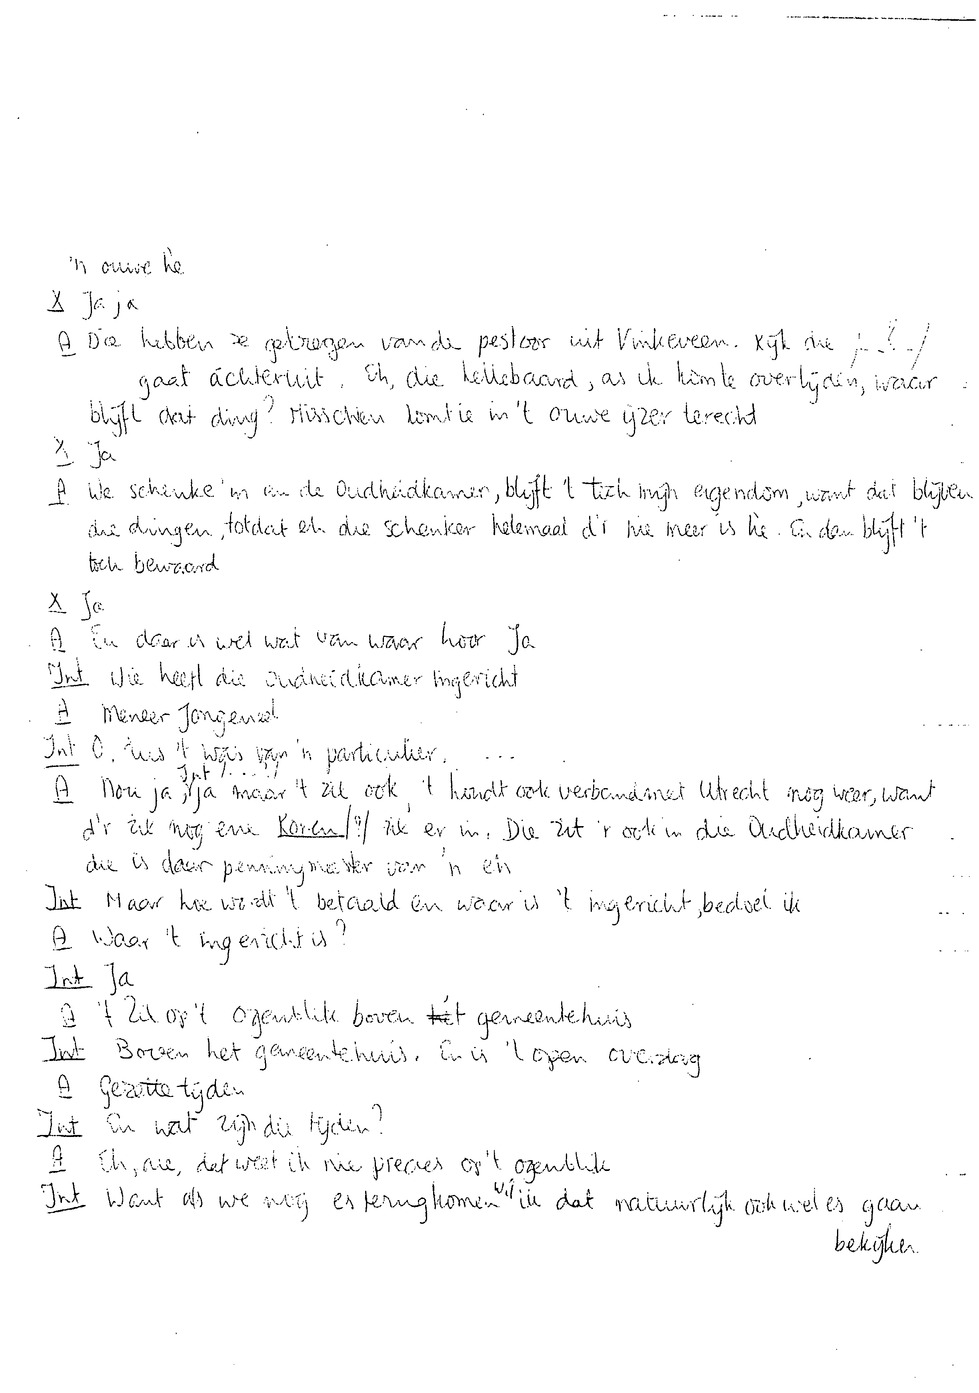 'n ouwe hè
X Ja ja
A Die hebben ze gekregen van de pestoor uit Vinkeveen. Kijk die /...?.../
gaat áchteruit. Eh, die hellebaard, as ik kom te overlijden, waar
blijft dat ding? Misschien komt ie in 't ouwe ijzer terecht
X Ja
A We schenke 'm an de Oudheidkamer, blijft 't toch mijn eigendom, want dat blijven
die dingen, totdat eh die schenker helemaal d'r nie meer is hè. En dan blijft 't
toch bewaard
X Ja
A En daar is wel wat van waar hoor Ja
Int Wie heeft die oudheidkamer ingericht
A Meneer
Int O, dus 't was van 'n particulier. ...
Int /..../
A Nou ja, ja maar 't zit ook, 't houdt ook verband met Utrecht nog weer, want
d'r zit nog ene Koren/?/ zit er in. Die zit 'r ook in die Oudheidkamer
die is daar penningmeester van 'n eh
Int Maar hoe wordt 't betaald en waar is 't ingericht, bedoel ik
A Waar 't ingericht is?
Int Ja
A 't Zit op 't ogenblik boven hét gemeentehuis
Int Boven het gemeentehuis. En is 't open overdag
A Gezette tijden
Int En wat zijn die tijden?
A Eh, nee, dat weet ik nie precies op 't ogenblik
Int Want als we nog es terugkomen wil ik dat natuurlijk ook wel es gaan
bekijken